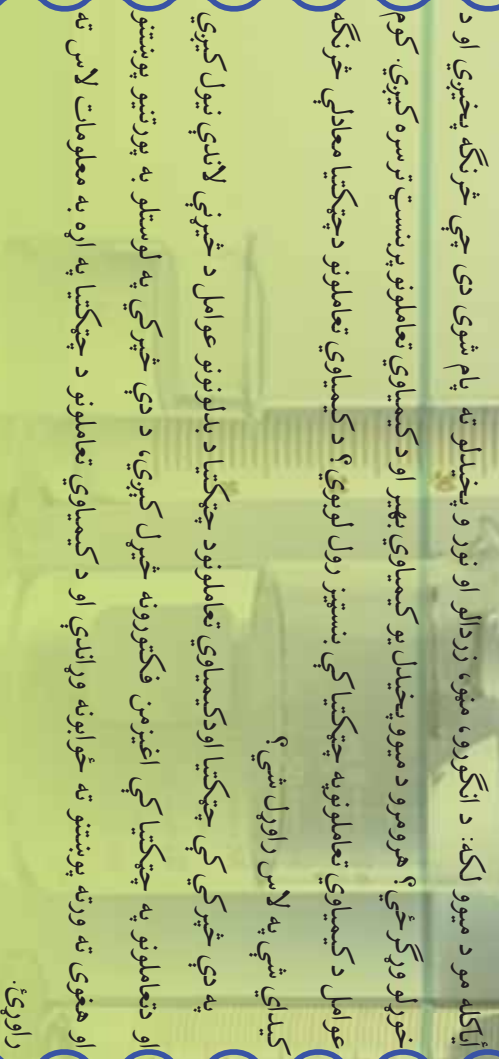 آیاکله مو د میوو لکه: د انگورو، منو، زردالو او نور و پخیدلو ته پام شوی دی چې څرنگه پخیږي او د
خوړلو وړگرځي؟ هرومرو د میوو پخیدل یو کیمیاوي بهیر او د کیمیاوي تعاملونو پر بنسټ تر سره کیږي. کوم
عوامل د کیمیاوي تعاملونوپه چټکتیا کې بنسټیز رول لوبوي؟ د کیمیاوي تعاملونو دچټکتیا معادلې څرنگه
کیدای شي په لاس راوړل شي؟
په دې څپرکي کې چټکتیا اودکیمیاوي تعاملونود چټکتیا د بدلونونو عوامل د څیړنې لاندې نیول کیږي
او دتعاملونو په چټکتیا کې اغیزمن فکتورونه څیړل کیږي، د دې څپرکي په لوستلو به پورتنیو پوښتنو
او هغوی ته ورته پوښتنو ته ځوابونه وړاندې او د کیمیاوي تعاملونو د چټکتیا په اړه به معلومات لاس ته
راوړئ.